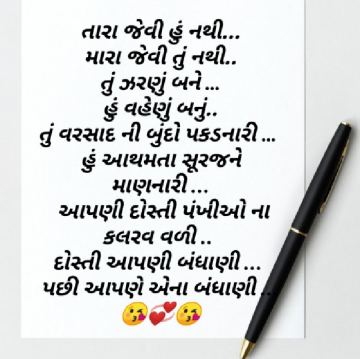 તારા જેવી હું નથી...
મારા જેવી તું નથી..
તું ઝરણું બને ...
હું વહેણું બનું..
તું વરસાદ ની બુંદો પકડનારી ...
હું આથમતા સૂરજને
માણનારી ...
આપણી દોસ્તી પંખીઓ ના
કલરવ વળી ..
દોસ્તી આપણી બંધાણી ...
પછી આપણે એના બંધાણી ..
😘💞😘